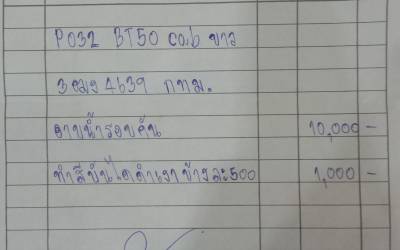 P032 BT50 cab ขาว
3ฒฆ 4639 กทม.
อาบน้ำรอบคัน 10,000-
ทำสีบันไดดำเงาข้างละ500 1,000-